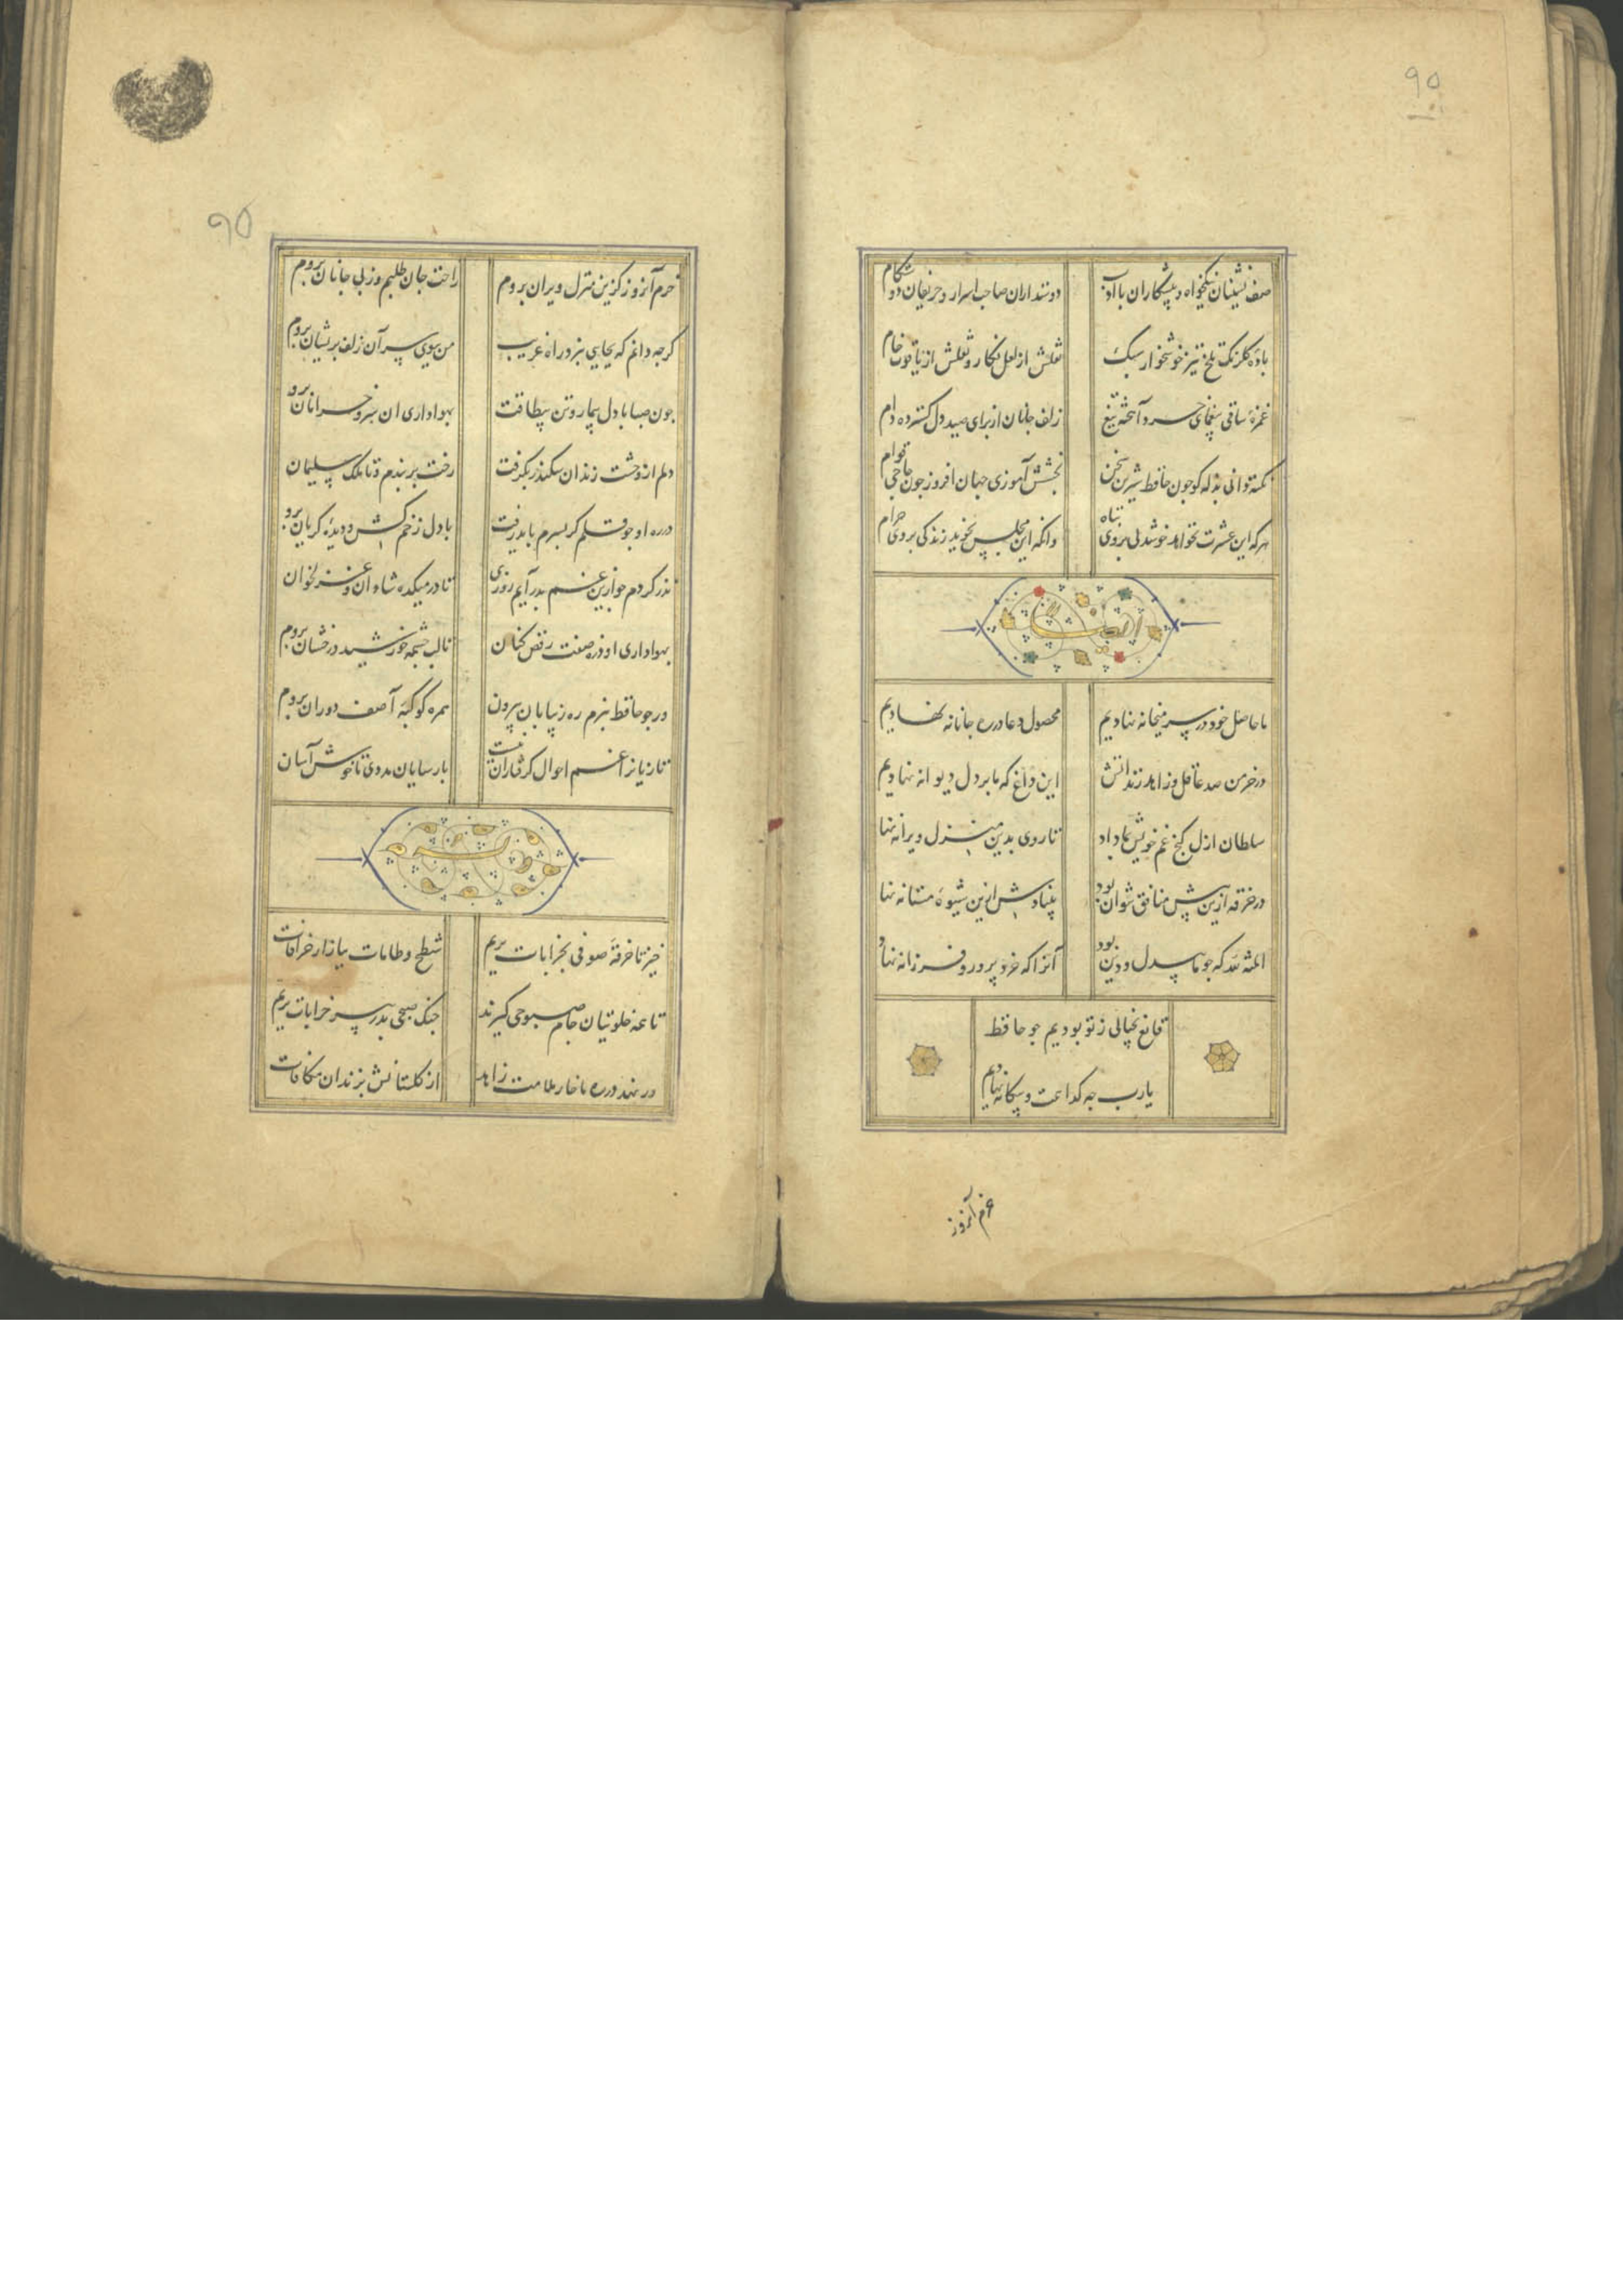 ۹۵
صف نشینان نیکخواه و پیشکاران باادب
دوستداران صاحب اسرار و حریفان دوستکام
باده گلرنگ تلخ تیز خوشخوار سبک
نقلش از لعل نگار و نقلش از یاقوت خام
غمزه ساقی بیغمای خرد آهخته تیغ
زلف جانان از برای صید دل گسترده دام
نکته دانی بذله گو جون حافظ شیرین سخن
بخشش آموزی جهان افروز جون حاجی قوام
هرکه این عشرت نخواهد خوشدلی بر وی تباه
وانکه این مجلس نجوید زندگی بر وی حرام
ایضا
ما حاصل خود در سر میخانه نهادیم
محصول دعا در ره جانانه نهادیم
در خرمن صد عاقل و زاهد زند اتش
این داغ که ما بر دل دیوانه نهادیم
سلطان ازل کنج غم خویش بما داد
تا روی بدین منزل ویرانه نها
در خرقه ازین پیش منافق نتوان بود
بنیادش ازین شیوه مستانه نها
المنة لله که جو ما بیدل و دین بود
آنرا که خرد پرور و فرزانه نهاد
قانع بخیالی ز تو بودیم جو حافظ
یارب جه کدا همت و بیگانه نهادیم
خرم آنروز
۹۵
خرم آنروز کزین منزل ویران بروم
راحت جان طلبم وز پی جانان بروم
کرجه دانم که بجایی نبرد راه غریب
من ببوی سر آن زلف پریشان بروم
جون صبا با دل بیمار و تن بیطاقت
بهواداری ان سرو خرامان برو
دلم از وحشت زندان سکندر بگرفت
رخت بربندم و تا ملک سلیمان
در ره او جو قلم کر بسرم باید رفت
با دل زخم کش و دیده کریان برو
نذر کردم جو ازین غم بدر آیم روزی
تا در میکده شادان و غزلخوان
بهواداری او ذره صفت رقص کنان
تا لب جشمه خورشید درخشان بروم
ور جو حافظ نبرم ره ز بیابان بیرون
همره کوکبه آصف دوران بروم
تازیانرا غم احوال کرفتاران نیست
پارسایان مددی تا خوش آسان
وله
خیز تا خرقه صوفی بخرابات بریم
شطح و طامات ببازار خرافات
تا همه خلوتیان جام صبوحی کیرند
جنک صبحی بدر پیر خرابات بریم
ور نهد در ره ما خار ملامت زاهد
از کلستانش بزندان مکافات